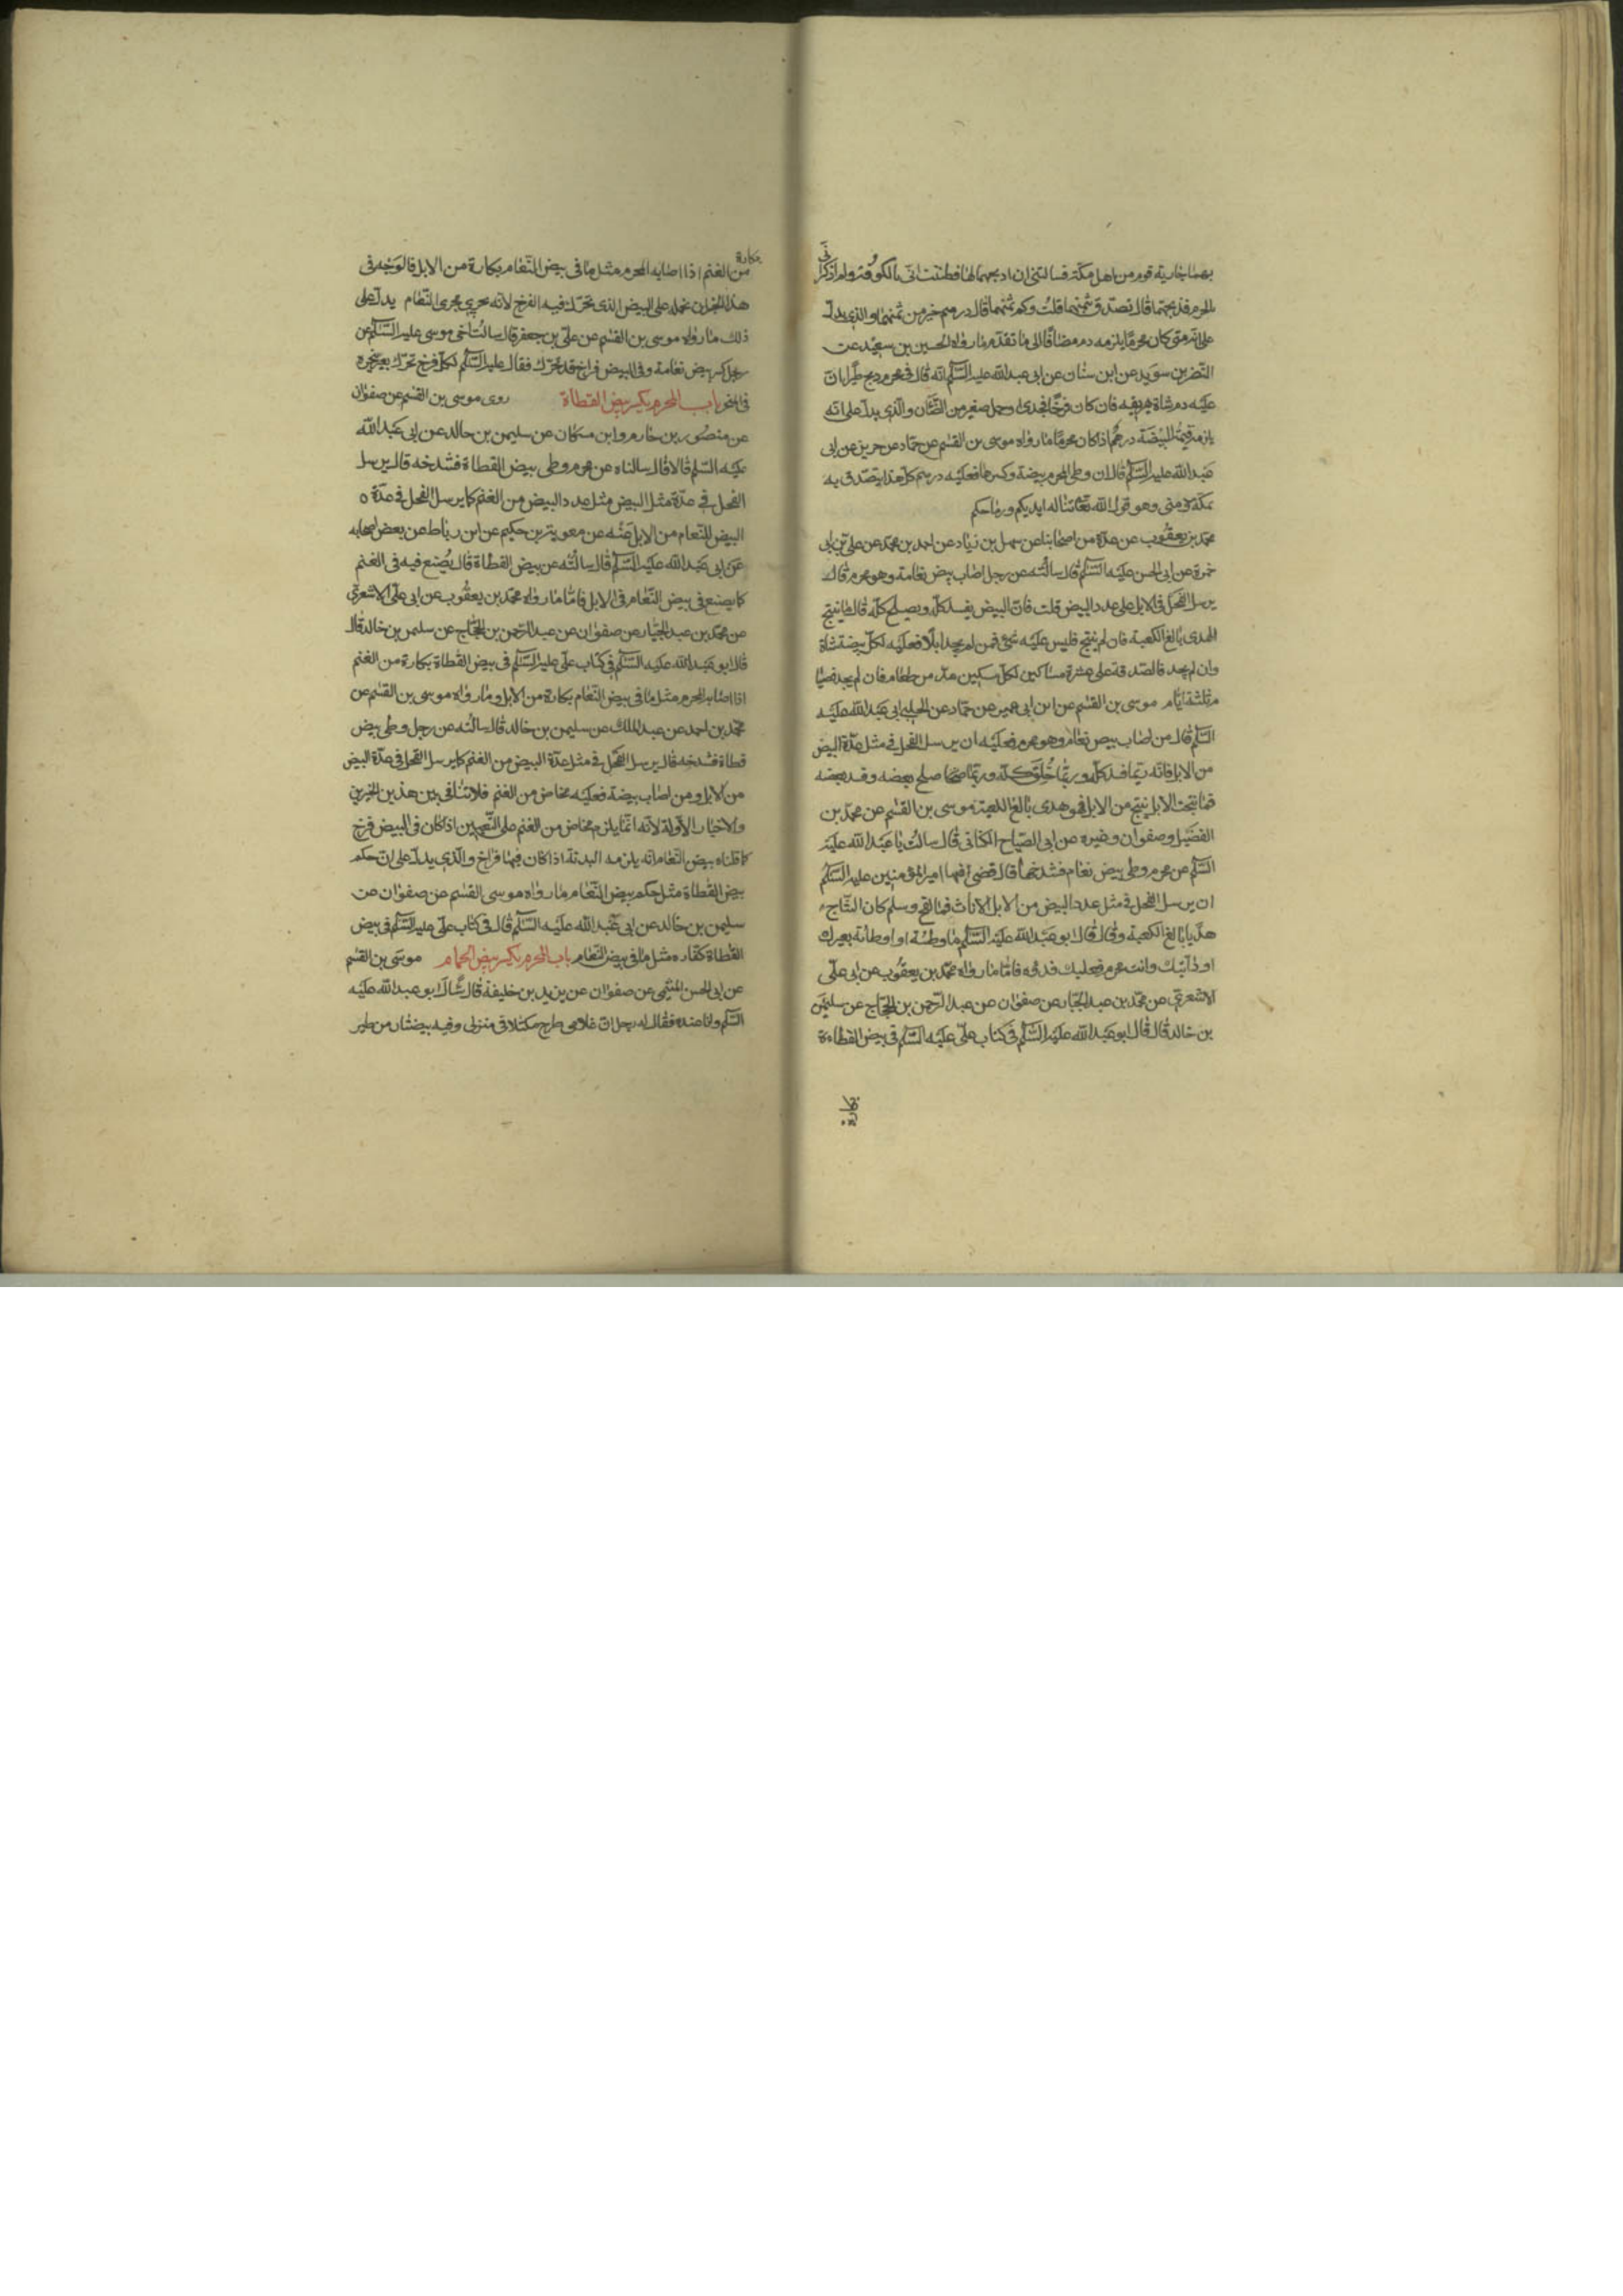 بهما جارية قوم من اهل مكة فسالتنى ان اذبحهما لها فظننت انى بالكوفة ولم اذكر انى
بالحرم فذبحتهما قال تصدق بثمنهما قلت وكم ثمنهما قال درهم خير من ثمنهما والذى يدل
على انه متى كان محرما يلزمه دم مضافا الى ما تقدم ما رواه الحسين بن سعيد عن
النضر بن سويد عن ابن سنان عن ابى عبد الله عليه السلم انه قال فى محرم ذبح طيرا ان
عليه دم شاة يهريقه فان كان فرخا فجدى او حمل صغير من الضان والذى يدل على انه
يلزمه قيمة البيضة درهم اذا كان محرما ما رواه موسى بن القسم عن حماد عن حريز عن ابى
عبد الله عليه السلم قال ان وطئ المحرم بيضة وكسرها فعليه درهم كل هذا يتصدق به
بمكة ومنى وهو قول الله تعالى تناله ايديكم ورماحكم
محمد بن يعقوب عن عدة من اصحابنا عن سهل بن زياد عن احمد بن محمد عن على بن ابى
حمزة عن ابى الحسن عليه السلم قال سالته عن رجل اصاب بيض نعامة وهو محرم قال
يرسل الفحل فى الابل على عدد البيض قلت فان البيض يفسد كله ويصلح كله قال ما ينتج
الهدى بالغ الكعبة فان لم ينتج فليس عليه شئ فمن لم يجد ابلا فعليه لكل بيضة شاة
وان لم يجد فالصدقة على عشرة مساكين لكل مسكين مد من طعام فان لم يجد فصيا
م ثلثة ايام موسى بن القسم عن ابن ابى عمير عن حماد عن الحلبى ابى عبد الله عليه
السلم قال من اصاب بيض نعام وهو محرم فعليه ان يرسل الفحل فى مثل عدة البيض
من الابل فانه ربما فسد كله وربما خلق كله وربما صلح بعضه وفسد بعضه
فما نتجت الابل ينتج من الابل فهو هدى بالغ الكعبة موسى بن القسم عن محمد بن
الفضيل وصفوان وغيره عن ابى الصباح الكنانى قال سالت يا عبد الله عليه
السلم عن محرم وطى بيض نعام فشدخها قال قضى فيها امير المؤمنين عليه السلم
ان يرسل الفحل فى مثل عدد البيض من الابل الاناث فما لقح وسلم كان النتاج
هديا بالغ الكعبة وقال قال ابو عبد الله عليه السلم ما وطئته او اوطأته بعيرك
او دابتك وانت محرم فعليك فدؤه فاما ما رواه محمد بن يعقوب عن ابى على
الاشعرى عن محمد بن عبد الجبار عن صفوان عن عبد الرحمن بن الحجاج عن سليمن
بن خالد قال قال ابو عبد الله عليه السلم فى كتاب على عليه السلم فى بيض القطاة
بكارة
من الغنم اذا اصابه المحرم مثل ما فى بيض النعام بكارة من الابل فالوجه فى
هذا الخبر ان نحمله على البيض الذى تحرك فيه الفرخ لانه يجرى مجرى النعام يدل على
ذلك ما رواه موسى بن القسم عن على بن جعفر قال سالت اخى موسى عليه السلم عن
رجل كسر بيض نعامة وفى البيض فراخ قد تحرك فقال عليه السلم لكل فرخ تحرك بعير ينحره
فى المنحر باب المحرم يكسر بيض القطاة روى موسى بن القسم عن صفوان
عن منصور بن حازم وابن مسكان عن سليمن بن خالد عن ابى عبد الله
عليه السلم قالا قال سالناه عن محرم وطى بيض القطاة فشدخه قال يرسل
الفحل فى عدة مثل البيض مثل عدد البيض من الغنم كما يرسل الفحل فى عدة
البيض للنعام من الابل عنه عن معوية بن حكيم عن ابن رباط عن بعض اصحابه
عن ابى عبد الله عليه السلم قال سالته عن بيض القطاة قال يصنع فيه فى الغنم
كما يصنع فى بيض النعام فى الابل فاما ما رواه محمد بن يعقوب عن ابى على الاشعرى
عن محمد بن عبد الجبار عن صفوان عن عبد الرحمن بن الحجاج عن سليمن بن خالد قال
قال ابو عبد الله عليه السلم فى كتاب على عليه السلم فى بيض القطاة بكارة من الغنم
اذا اصابه المحرم مثل ما فى بيض النعام بكارة من الابل وما رواه موسى بن القسم عن
محمد بن احمد عن عبد الملك عن سليمن بن خالد قال سالته عن رجل وطى بيض
قطاة فشدخه قال يرسل الفحل فى مثل عدة البيض من الغنم كما يرسل الفحل فى عدة البيض
من الابل ومن اصاب بيضة فعليه مخاض من الغنم فلا تنافى بين هذين الخبرين
والاخبار الاولة لانه انما يلزم مخاض من الغنم على التعيين اذا كان فى البيض فرخ
كما قلناه بيض النعام انه يلزمه البدنة اذا كان فيها فراخ والذى يدل على ان حكم
بيض القطاة مثل حكم بيض النعام ما رواه موسى القسم عن صفوان عن
سليمن بن خالد عن ابى عبد الله عليه السلم قال فى كتاب على عليه السلم فى بيض
القطاة كفاره مثل ما فى بيض النعام باب المحرم يكسر بيض الحمام موسى بن القسم
عن ابى الحسن النخعى عن صفوان عن يزيد بن خليفة قال سال ابو عبد الله عليه
السلم وانا عنده فقال له رجل ان غلامى طرح مكتلا فى منزلى وفيه بيضتان من طير